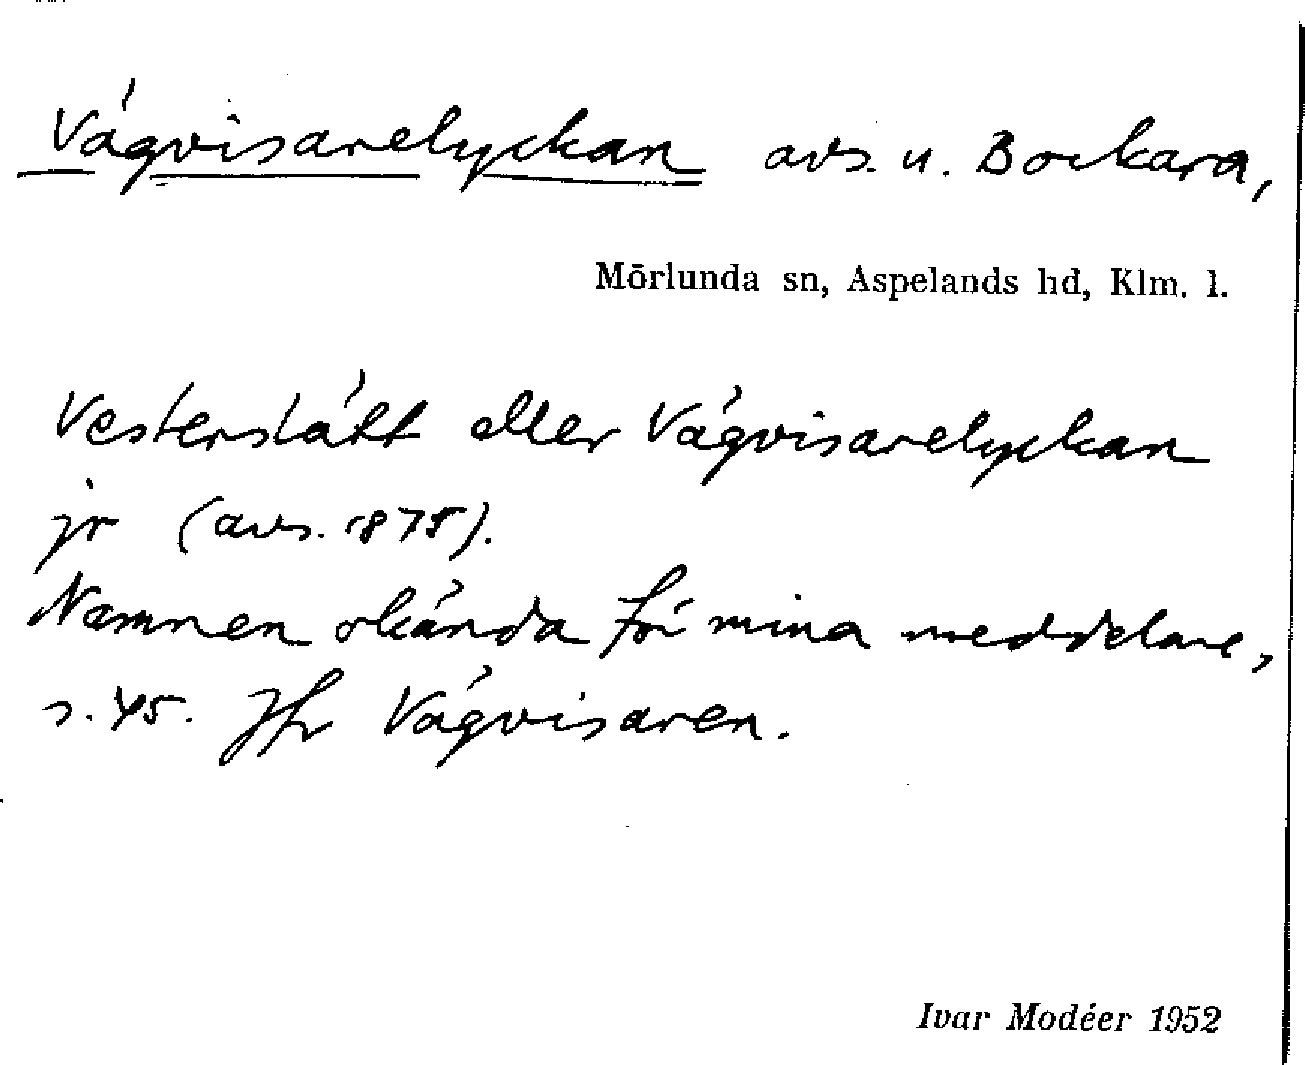 Vägvisarelyckan avs. u. Bockara,
Mörlunda sn, Aspelands hd, Klm. l.
Vesterslätt eller Vägvisarelyckan
jr (avs. 1875).
Namnen okända för mina meddelare,
s. 45. Jfr Vägvisaren.
Ivar Modéer 1952